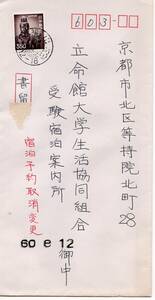 603-
京都市北区等持院北町28
立命館大学生活協同組合
受験宿泊案内所
御中
書留
宿泊予約取消変更
60 e 12
350